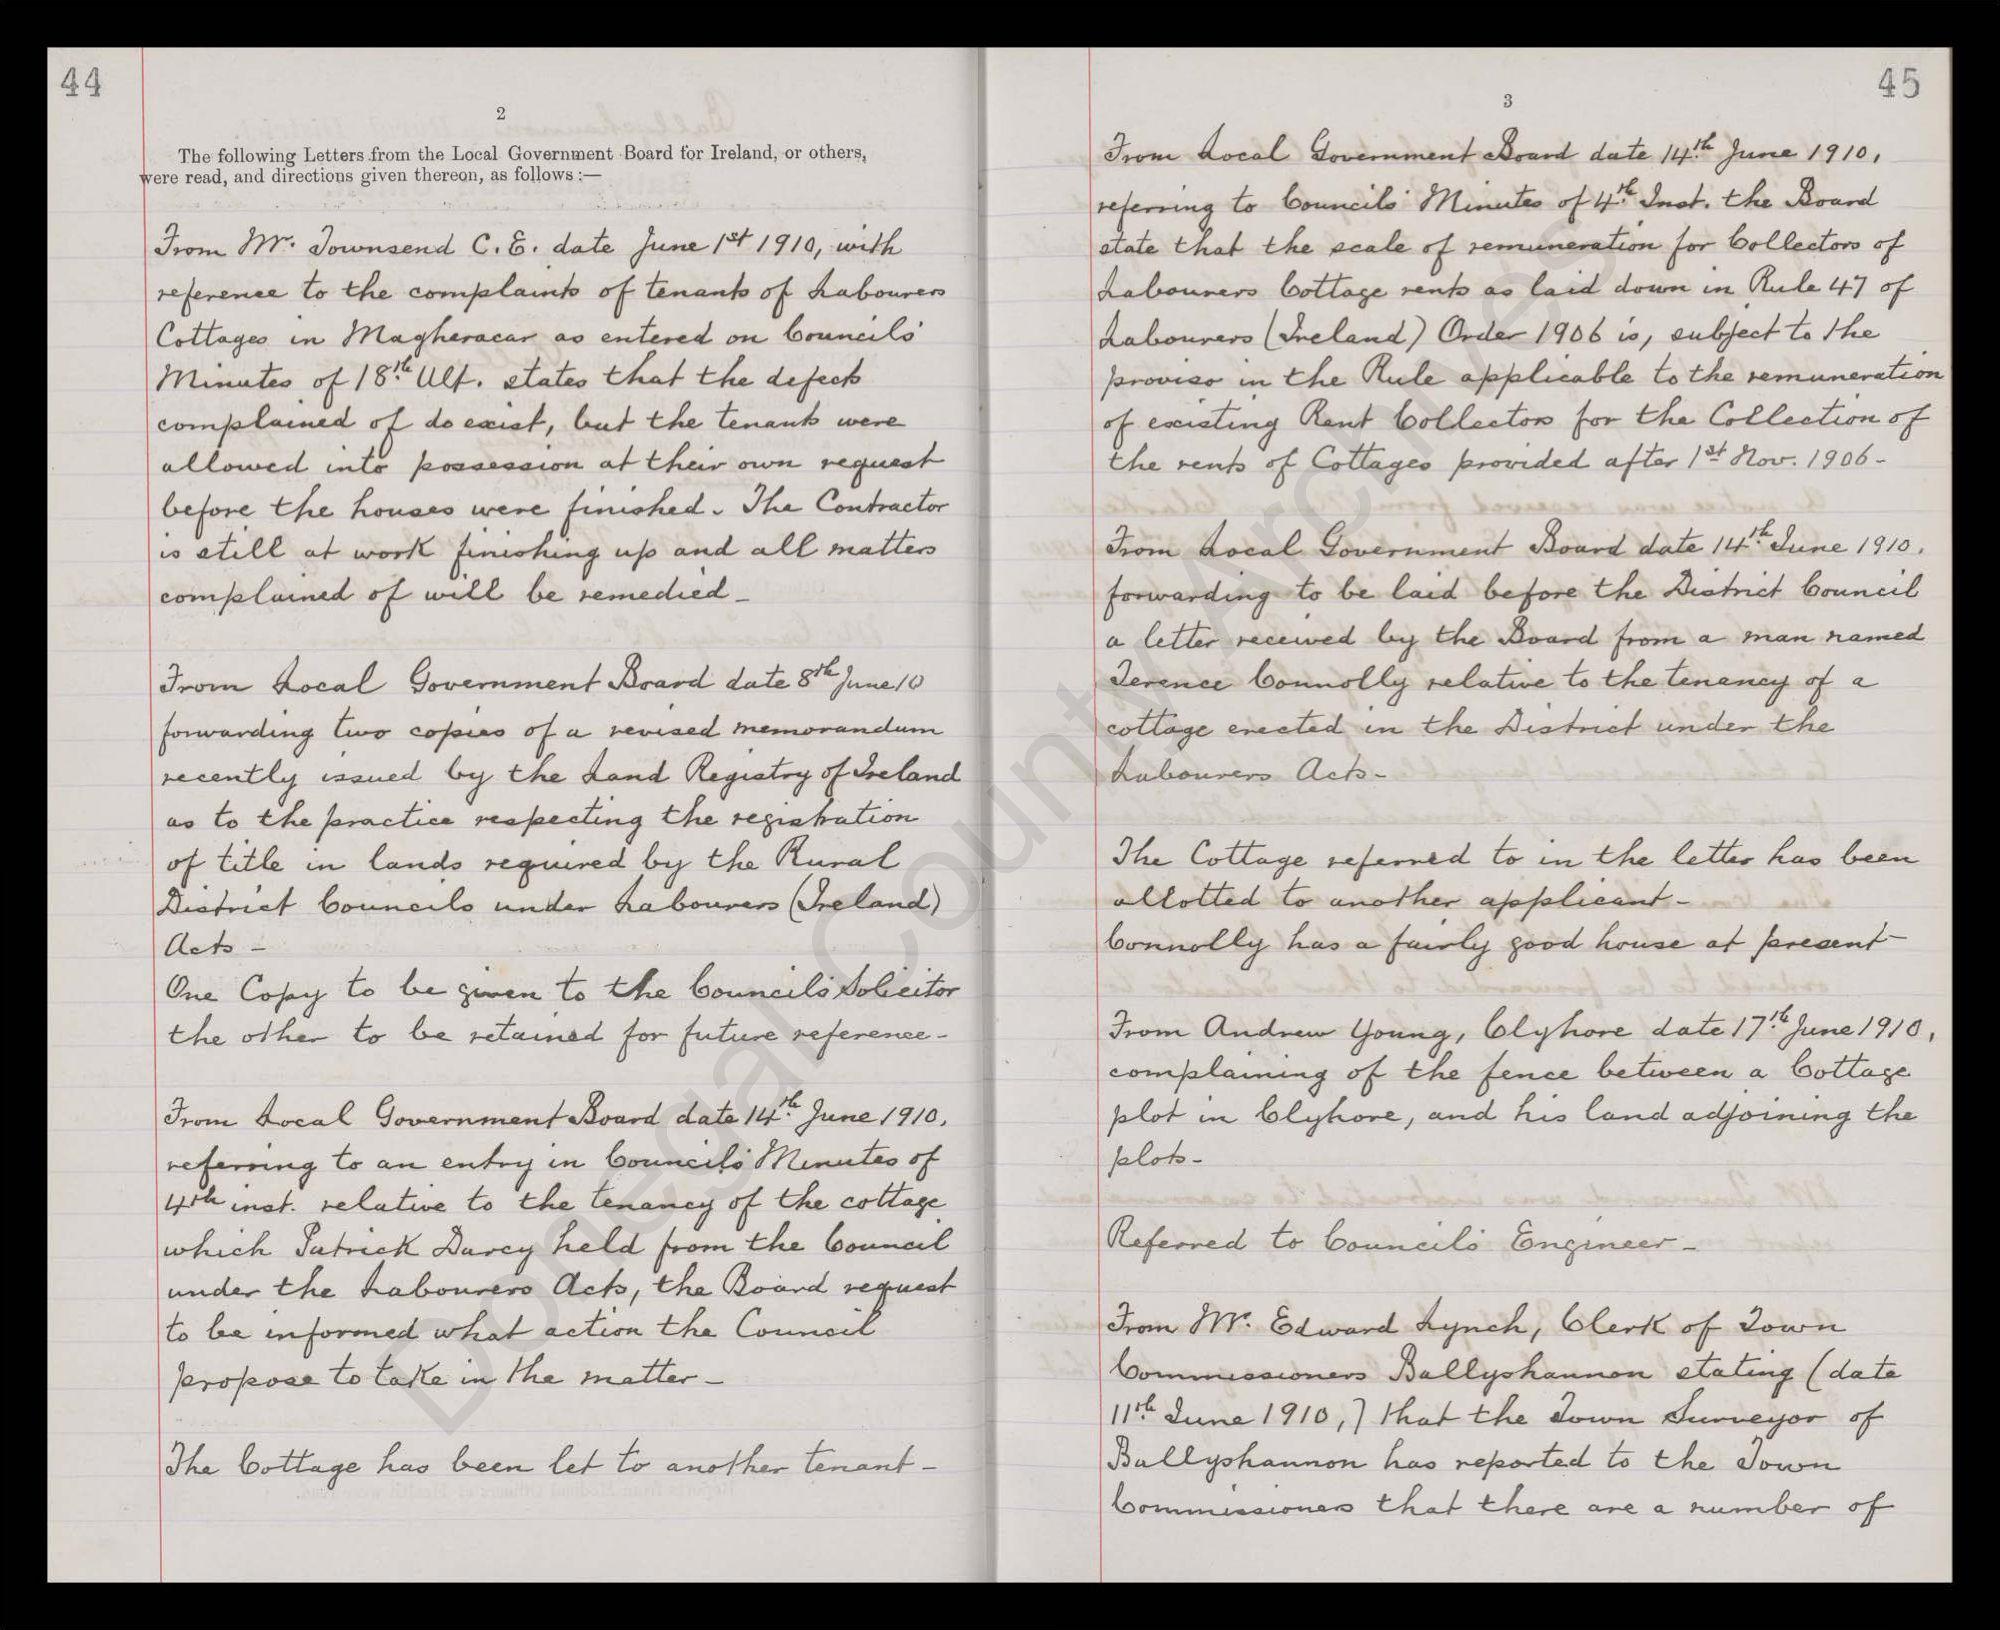 44
2
The following Letters from the Local Government Board for Ireland, or others,
were read, and directions given thereon, as follows :—
From Mr. Townsend C. E. date June 1st 1910, with
reference to the complaints of tenants of Labourers
Cottages in Magheracar as entered on Council's
Minutes of 18th Ult. states that the defects
complained of do exist, but the tenants were
allowed into possession at their own request
before the houses were finished. The Contractor
is still at work finishing up and all matters
complained of will be remedied -
From Local Government Board date 8th June 10
forwarding two copies of a revised memorandum
recently issued by the Land Registry of Ireland
as to the practice respecting the registration
of title in lands required by the Rural
District Councils under Labourers (Ireland)
Acts -
One Copy to be given to the Council's Solicitor
the other to be retained for future reference -
From Local Government Board date 14th June 1910,
referring to an entry in Council's Minutes of
4th inst. relative to the tenancy of the cottage
which Patrick Darcy held from the Council
under the Labourers Acts, the Board request
to be informed what action the Council
propose to take in the matter -
The Cottage has been let to another tenant -
45
3
From Local Government Board date 14th June 1910,
referring to Council's Minutes of 4th Inst. the Board
state that the scale of remuneration for Collectors of
Labourers Cottage rents as laid down in Rule 47 of
Labourers (Ireland) Order 1906 is, subject to the
proviso in the Rule applicable to the remuneration
of existing Rent Collectors for the Collection of
the rents of Cottages provided after 1st Nov. 1906 -
From Local Government Board date 14th June 1910,
forwarding to be laid before the District Council
a letter received by the Board from a man named
Terence Connolly relative to the tenancy of a
cottage erected in the District under the
Labourers Acts -
The Cottage referred to in the letter has been
allotted to another applicant -
Connolly has a fairly good house at present -
From Andrew Young, Clyhore date 17th June 1910,
complaining of the fence between a Cottage
plot in Clyhore, and his land adjoining the
plots -
Referred to Council's Engineer -
From Mr. Edward Lynch, Clerk of Town
Commissioners Ballyshannon stating (date
11th June 1910,) that the Town Surveyor of
Ballyshannon has reported to the Town
Commissioners that there are a number of
Donegal County Archives